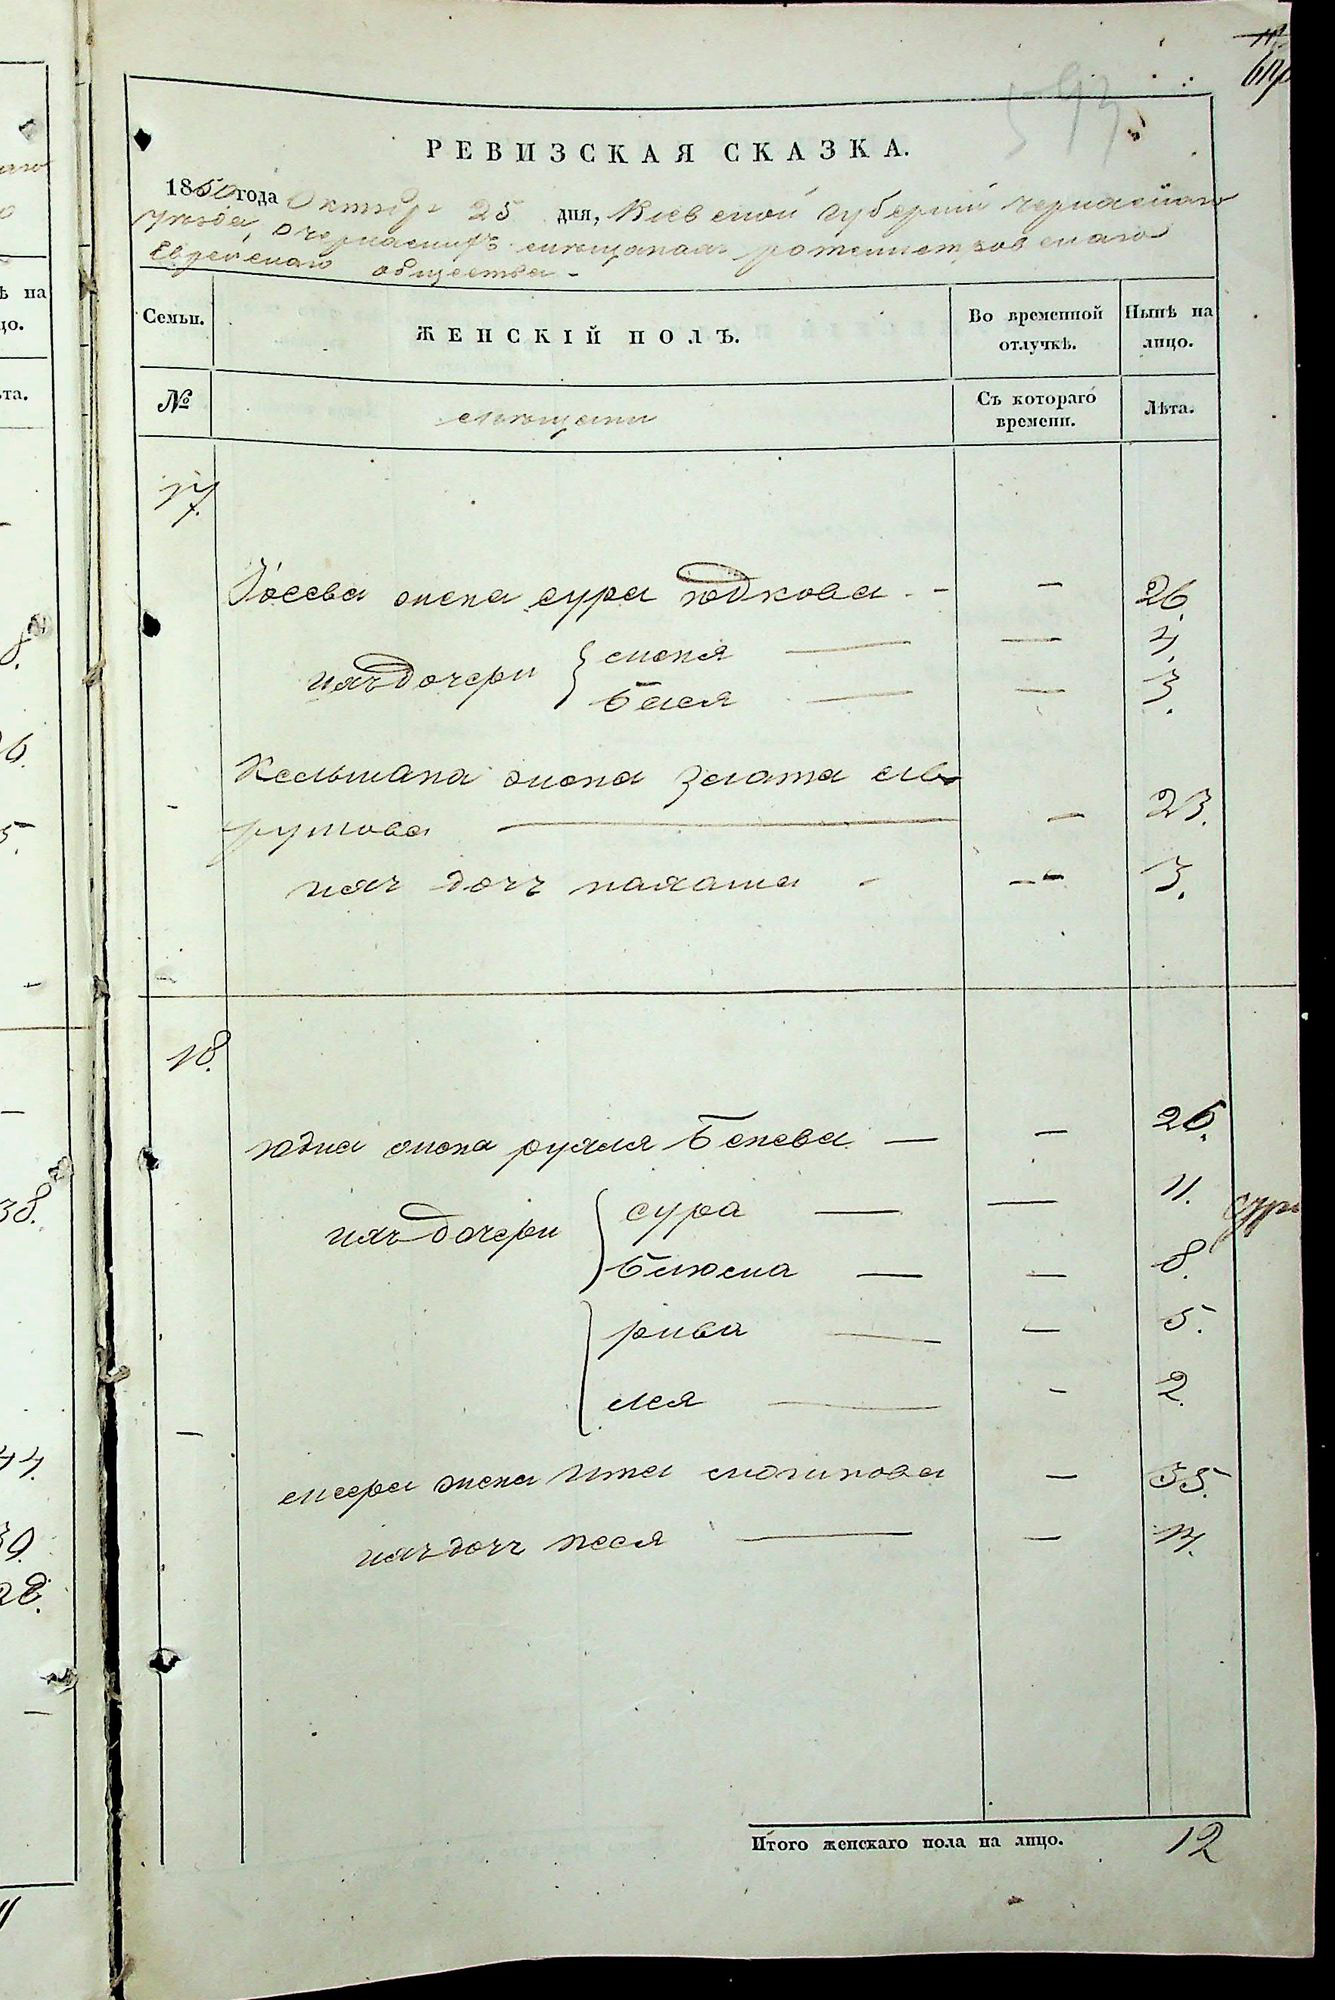 593
РЕВИЗСКАЯ СКАЗКА.
1850 года Октября 25 дня, Киевской губернии черкаскаго
уезда, очеркаских мещанах ротмистровскаго
Еврейскаго общества
Семьи. ЖЕНСКІЙ ПОЛЪ. Во временной отлучкѣ. Нынѣ на лицо.
№ мещани Съ котораго времени. Лѣта.
17.
Иосева жена сура юдкова - - 26.
ихъ дочери { слова — — 4.
бася — — 3.
Кельмана жена злата
— - 23.
ихъ дочь - -- 3.
18.
юдка жена рухля бенева — - 26.
ихъ дочери { сура — — 11.
— — 8.
рива — — 5.
лея — - 2.
жена гита — 35.
ихъ дочь песя — — 14.
Итого женскаго пола на лицо. 12